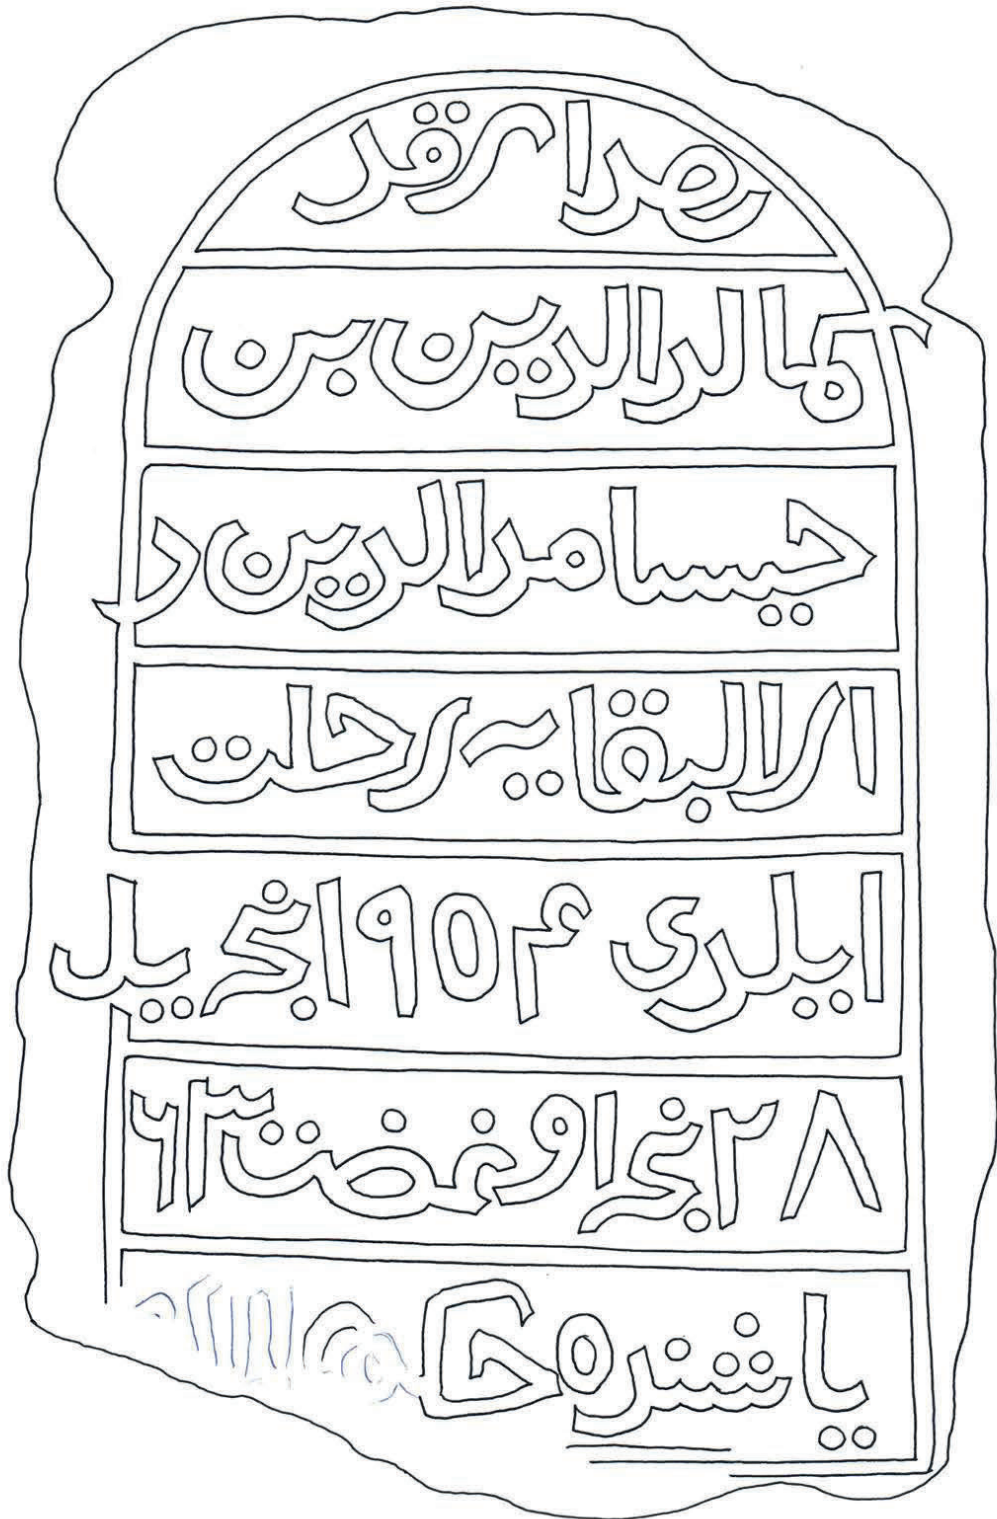 هدا مرقد
كمالدالدين بن
حيسامدالدين د
ار البقايه رحلت
ايلدى ١٩٥۴ نجى يل
٢٨ نجى اوغضت ٦٣
ياشنده